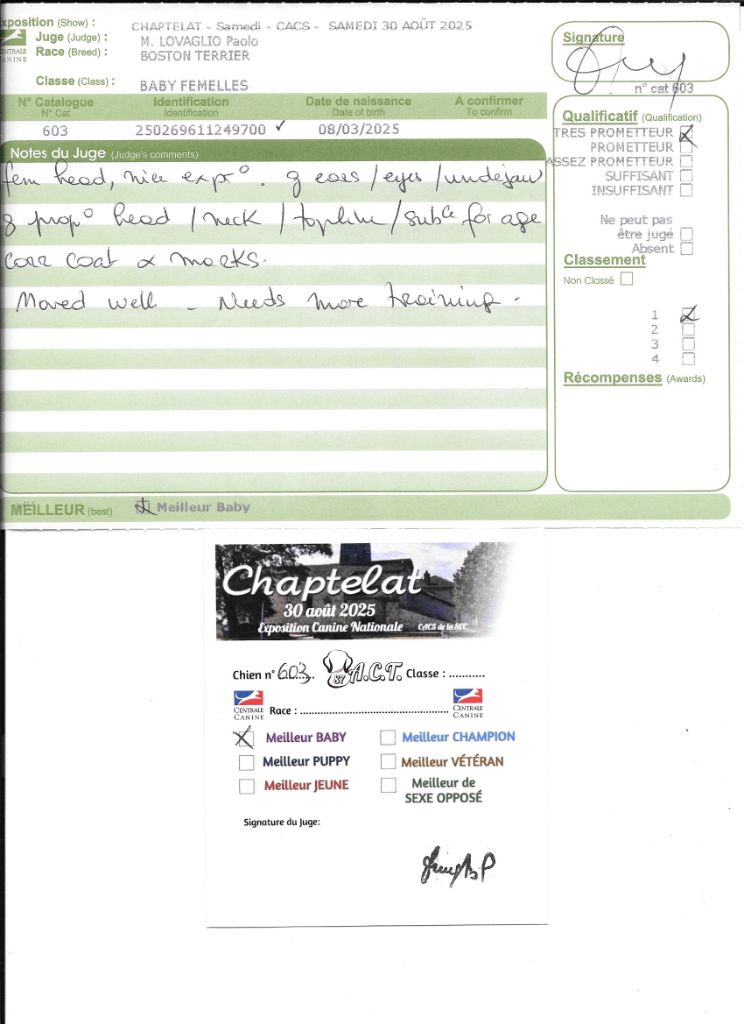 xposition (Show) : CHAPTELAT - Samedi - CACS - SAMEDI 30 AOÛT 2025
Juge (Judge) : M. LOVAGLIO Paolo
Race (Breed) : BOSTON TERRIER
CENTRALE
CANINE
Classe (Class) : BABY FEMELLES
Signature
n° cat 603
N° Catalogue Identification Date de naissance A confirmer
N° Cat Identification Date of birth To confirm
603 250269611249700 ✓ 08/03/2025
Notes du Juge (Judge's comments)
fem head, nice exp°. g ears / eyes / undejaw
g prop° head / neck / topline / subce for age
Corr coat & marks.
Moved well - Needs more training.
Qualificatif (Qualification)
TRES PROMETTEUR
PROMETTEUR
ASSEZ PROMETTEUR
SUFFISANT
INSUFFISANT
Ne peut pas
être jugé
Absent
Classement
Non Classé
1
2
3
4
Récompenses (Awards)
MEILLEUR (best) Meilleur Baby
Chaptelat
30 août 2025
Exposition Canine Nationale CACS de la SCC
Chien n° 603 87 A.C.T. Classe : ...........
CENTRALE
CANINE
Race : ..................................................
CENTRALE
CANINE
Meilleur BABY
Meilleur CHAMPION
Meilleur PUPPY
Meilleur VÉTÉRAN
Meilleur JEUNE
Meilleur de
SEXE OPPOSÉ
Signature du Juge: